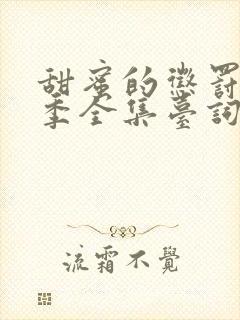 甜蜜的懲罰
季全集臺詞
流霜不覺